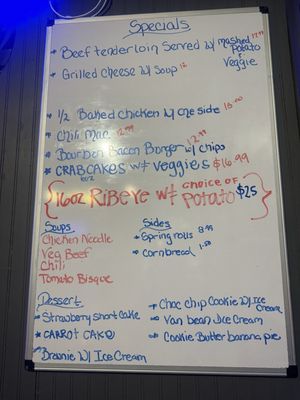 Specials
* Beef tenderloin Served w/ mashed Potato Veggie 17.99
* Grilled Cheese w/ Soup 12
* 1/2 Baked Chicken w/ one side 15.00
* Chili Mac 12.99
* Bourbon Bacon Burger w/ chips 12.99
* CRABCAKES wt veggies $16.99
16oz RiBEYE wt choice of POTATO $25
Soups
Chicken Noodle
Veg Beef
Chili
Tomato Bisque
Sides
* Spring rolls 8.99
* Cornbread 1.50
Dessert
* Strawberry Short Cake
* CARROT CAKE
* Brownie w/ Ice Cream
* Choc Chip Cookie w/ Ice Cream
* Van bean Ice Cream
* Cookie Butter banana pie